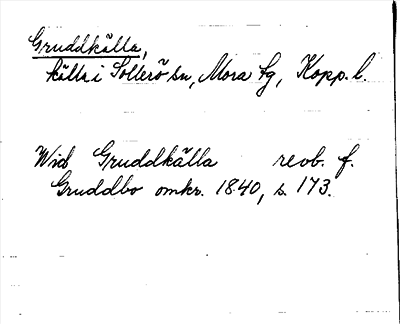 Gruddkälla,
källa i Sollerö sn, Mora tg, Kopp. l.
Wid Gruddkälla reob. f.
Gruddbo omkr. 1840, s. 173.